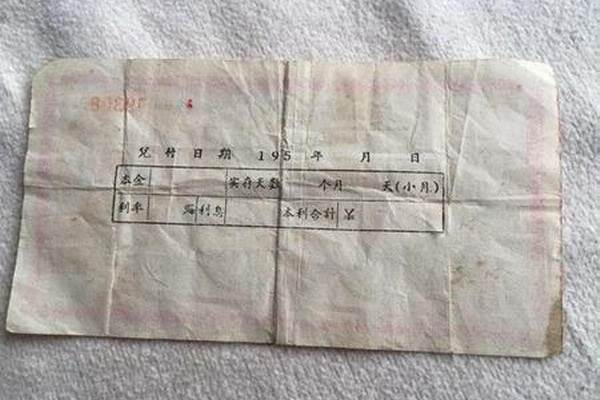 兑付日期 195 年 月 日
本金 实存天数 个月 天(小月)
利率 利息 本利合計 ¥